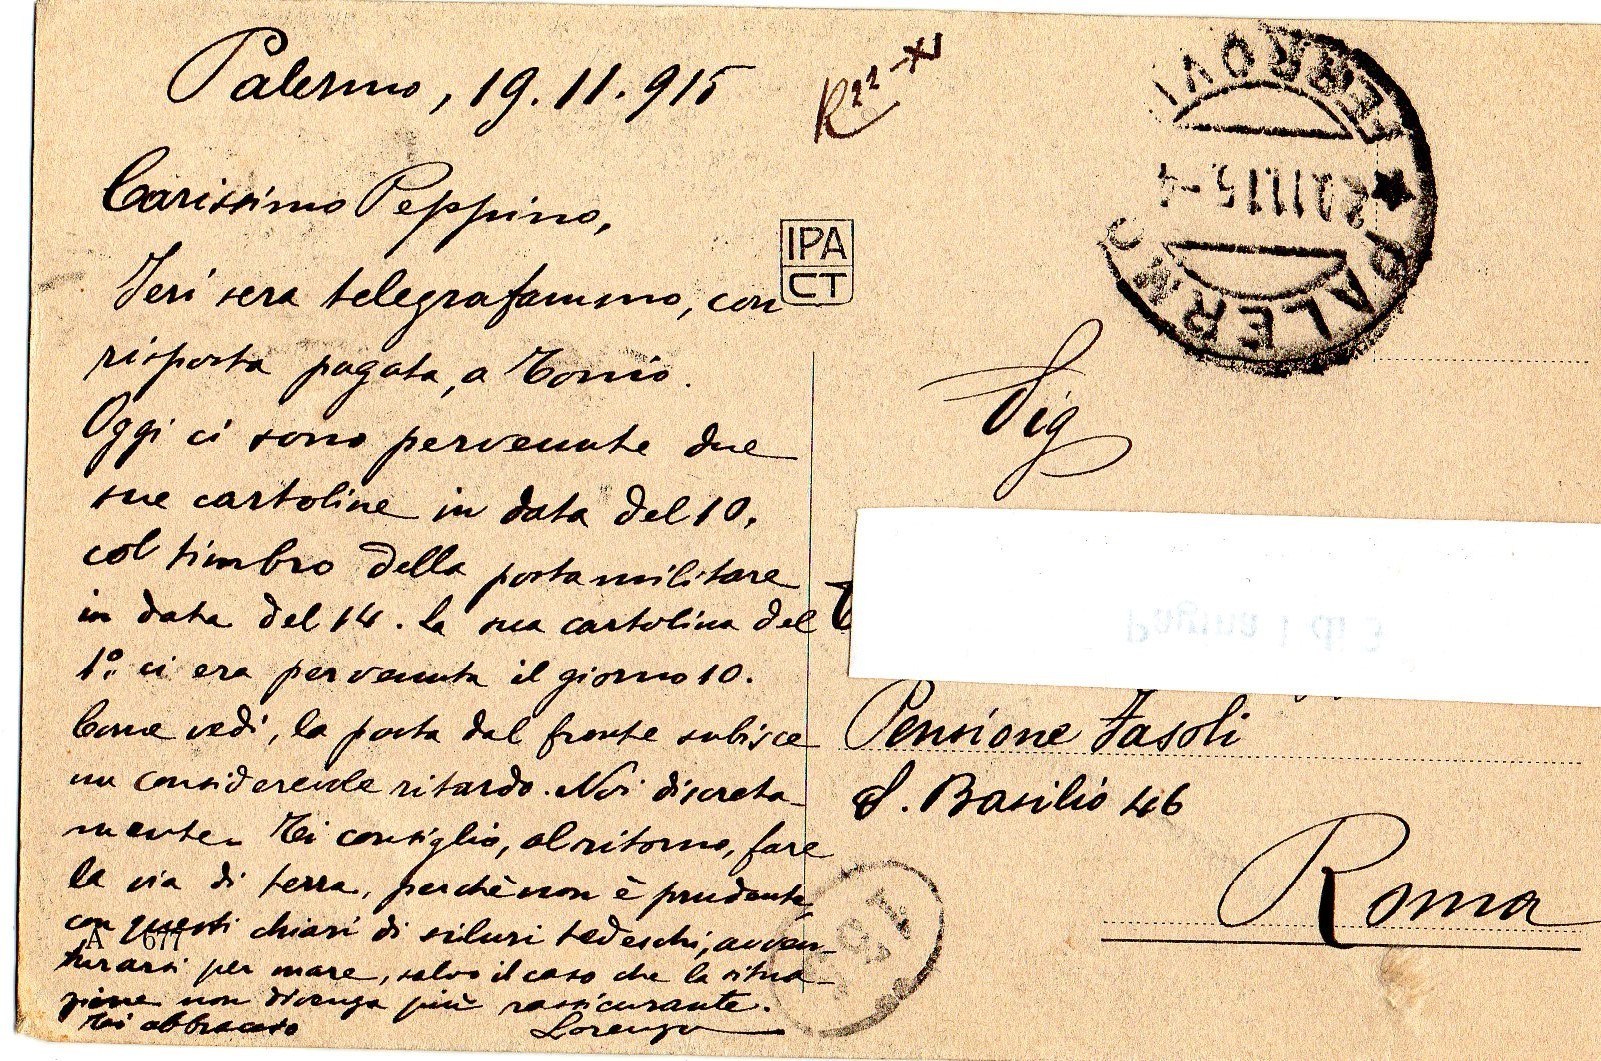 Palermo, 19.11.915
Carissimo Peppino,
Ieri sera telegrafammo, con
risposta pagata, a Tonio.
Oggi ci sono pervenute due
sue cartoline in data del 10,
col timbro della posta militare
in data del 14. La sua cartolina del
1º ci era pervenuta il giorno 10.
Come vedi, la posta dal fronte subisce
un considerevole ritardo. Noi discreta-
mente. Ti consiglio, al ritorno, fare
la via di terra, perchè non è prudente,
con questi chiari di siluri tedeschi, avven-
turarsi per mare, salvo il caso che la situa-
zione non divenga più rassicurante.
Ti abbraccio
Lorenzo
A 677
R 22-XI
IPA
CT
FERROVI
20.11.15-4
PALERMO
Sig
Pagina 1 di 3
Pensione Fasoli
S. Basilio 46
Roma